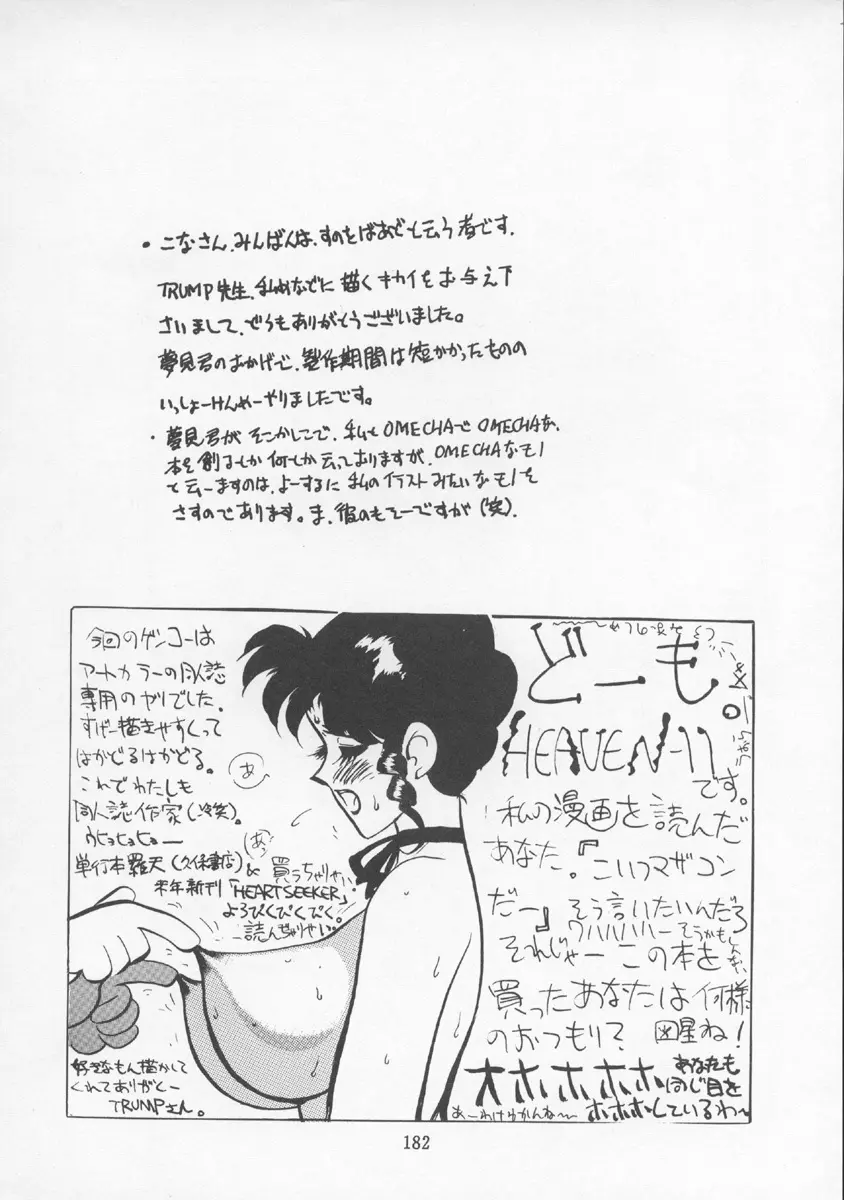 ・こなさん、みんばんは、すのをばあどと云う者です.
TRUMP先生、私めなどに描くキカイをお与え下
さいまして、どうもありがとうございました。
夢見君のおかげで、製作期間は短かかったものの
いっしょーけんめーやりましたです。
・夢見君が そこかしこで、私も OMECHAで OMECHAな
本を創るとか何とか云っておりますが、OMECHAなモノ
と云ーますのは、よーするに 私のイラストみたいなモノを
さすのであります。ま、彼のもそーですが(笑).
今回のゲンコーは
アートカラーの同人誌
専用のヤツでした。
すげー描きやすくって
はかどるはかどる。
これでわたしも
同人誌作家(冷笑).
ウヒョヒョヒョー
単行本羅天(久保書店)& 買うちゃりせい
来年新刊「HEARTSEEKER」
よろぴくぴくぴく。
読んちゃりせい。
あ
あっ
好きなもん描かして
くれてありがとー
TRUMPさん。
どーも。
HEAVEN-11
です。
私の漫画を読んだ
あなた。『こいつマザコン
だー』そう言いたいんだろ
ワハハハハー そうかもしんない
それじゃー この本を
買ったあなたは何様
のおつもり? 図星ね!
オホホホホ
あなたも
同じ目を
ホホホしているわ〜
あーわけわかんな〜
182